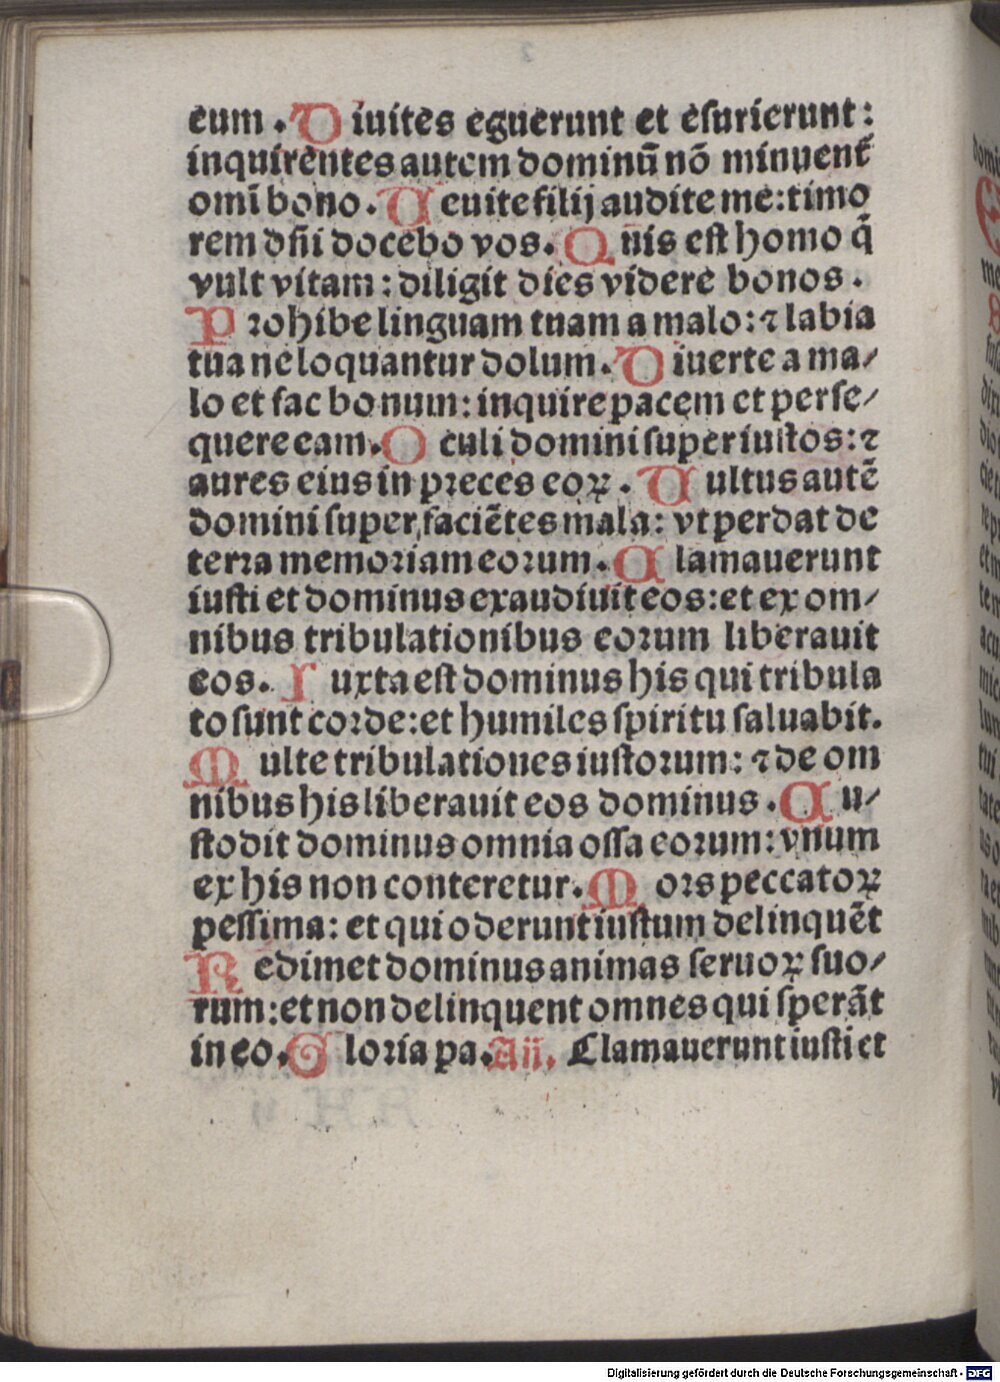 eum. Diuites eguerunt et esurierunt:
inquirentes autem dominū nō minuent᷑
omī bono. Uenite filij audite me: timo
rem dñi docebo vos. Quis est homo q̄
vult vitam: diligit dies videre bonos.
Prohibe linguam tuam a malo: ⁊ labia
tua ne loquantur dolum. Diuerte a ma/
lo et fac bonum: inquire pacem et perse/
quere eam. Oculi domini super iustos: ⁊
aures eius in preces eoꝝ. Uultus autē
domini super faciētes mala: vt perdat de
terra memoriam eorum. Clamauerunt
iusti et dominus exaudiuit eos: et ex om/
nibus tribulationibus eorum liberauit
eos. Iuxta est dominus his qui tribula
to sunt corde: et humiles spiritu saluabit.
Multe tribulationes iustorum: ⁊ de om
nibus his liberauit eos dominus. Cu/
stodit dominus omnia ossa eorum: vnum
ex his non conteretur. Mors peccatoꝝ
pessima: et qui oderunt iustum delinquēt
Redimet dominus animas seruoꝝ suo/
rum: et non delinquent omnes qui sperāt
in eo. Gloria pa. Añ. Clamauerunt iusti et
Digitalisierung gefördert durch die Deutsche Forschungsgemeinschaft - DFG